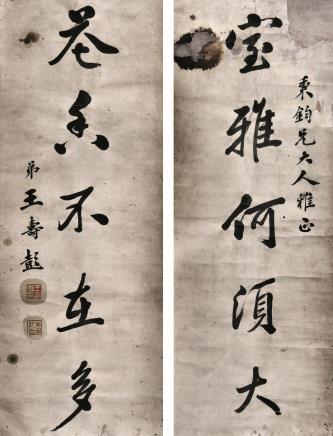 秉鈞兄大人雅正
室雅何須大
花香不在多
弟王壽彭